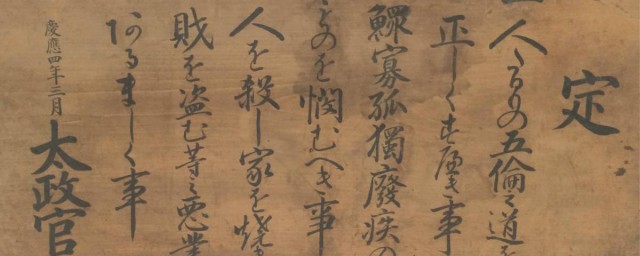 定
一人たるもの五倫之道を
正しくすへき事
鰥寡孤獨廢疾の
ものを憫むへき事
人を殺し家を焼
財を盗む等之悪業
あるましく事
慶應四年三月
太政官